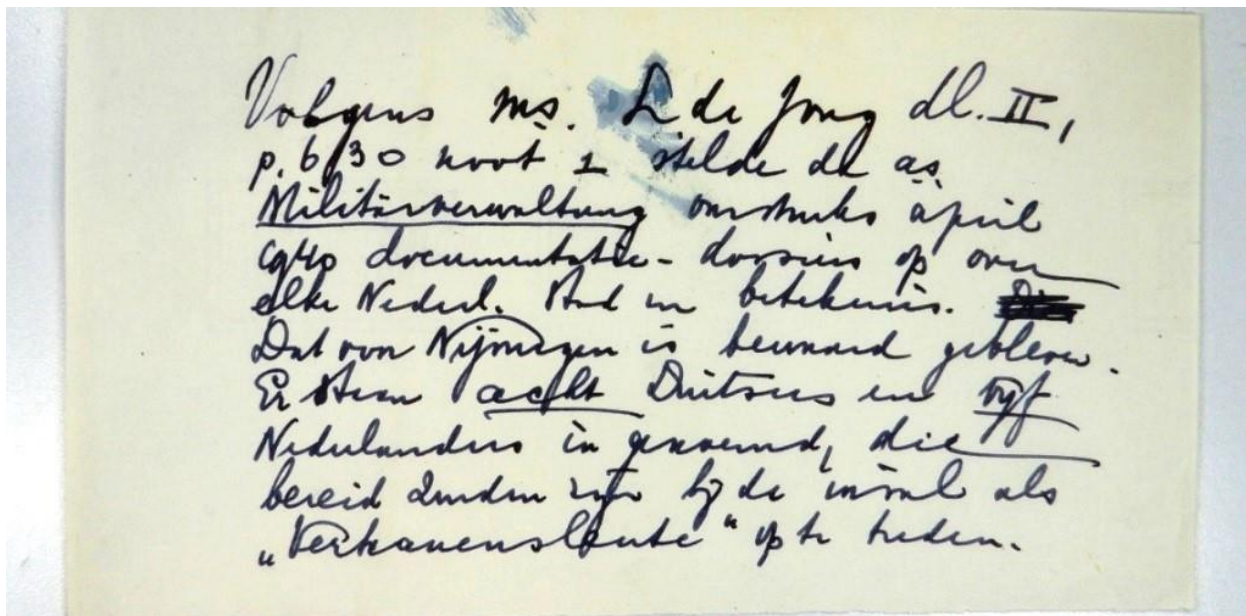 Volgens ms. L de Jong dl. II,
p. 630 noot 1 stelde de as.
Militärverwaltung omstreeks april
1940 documentatie-dossiers op over
elke Nederl. stad van betekenis.
Dat van Nijmegen is bewaard gebleven.
Er staan acht Duitsers en vijf
Nederlanders in genoemd, die
bereid zouden zijn bij de inval als
„Vertrauensleute" op te treden.